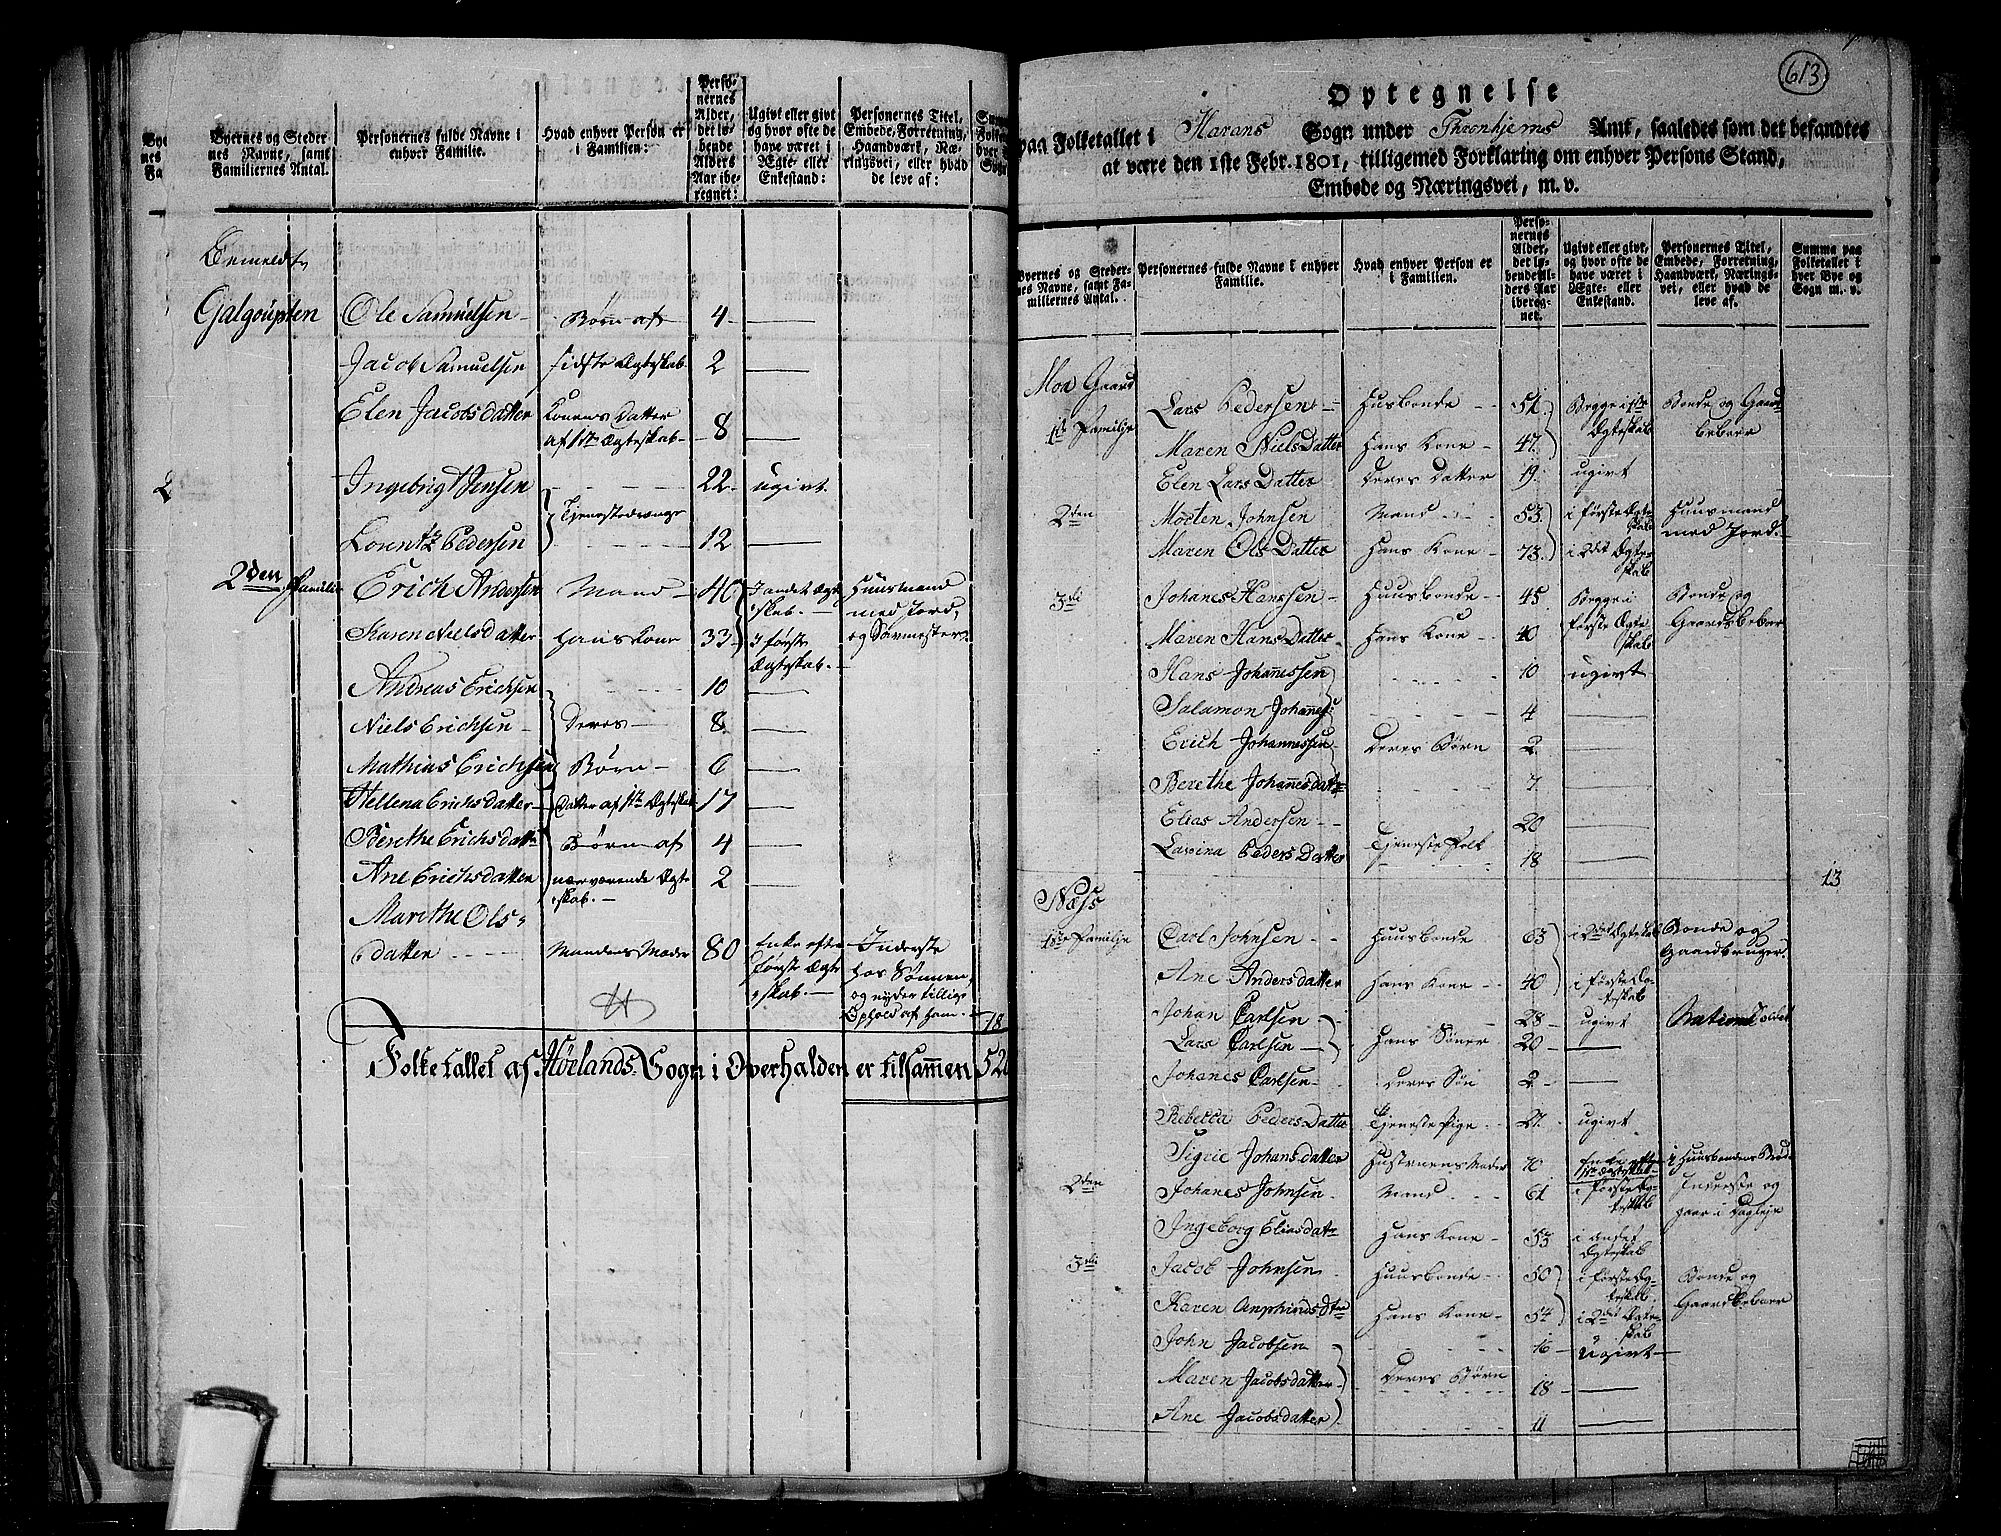 Byernes og Steder-
nes Navne, samt
Familiernes Antal.
Personernes fulde Navne i
enhver Familie.
Hvad enhver Person er
i Familien:
Perso-
nernes
Alder,
det lø-
bende
Alders
Aar ibe-
regnet:
Ugivt eller givt
og hvor ofte de
have været i
Ægte- eller
Enkestand:
Personernes Titel,
Embede, Forretning,
Haandværk, Næ-
ringsvei, eller hvad
de leve af:
Bemeldte
Galgoupten Ole Samuelsen Børn af 4
Jacob Samuelsen sidste Ægteskab 2
Elen Jacobsdatter Konens Datter
af 1ste Ægteskab 8
Ingebrigt Jensen 22 ugivt
Tjenestedrenge
Lorentz Pedersen 12
2den Familie Erich Andersen Mand 40 I andet Ægte- Huusmand
skab. med Jord,
Karen Nielsdatter Hans Kone 33 I første og Søvmester
Ægteskab.
Andreas Erichsen 10
Niels Erichsen Deres 8
Mathias Erichsen Børn 6
Hellena Erichsdatter Datter af 1ste Ægteskab 17
Berethe Erichsdattr Børn af 4
Ane Erichsdatter nærværende Ægte 2
skab.
Marethe Ols-
datter Mandens Moder 80 Enke efter Inderste
første Ægte- hos Sønnen,
skab. og nyder tillige
Ophold af ham. 18
Folketallet af Hørlands Sogn i Overhalden er tilsammen 520
613
Optegnelse
paa Folketallet i Harans Sogn under Thronhjems Amt, saaledes som det befandtes
at være den 1ste Febr. 1801, tilligemed Forklaring om enhver Persons Stand,
Embede og Næringsvei, m. v.
Byernes og Steder-
nes Navne, samt Fa-
miliernes Antal.
Personernes fulde Navne i enhver
Familie.
Hvad enhver Person er
i Familien.
Perso-
nernes
Alder,
det lø-
bende Al-
ders Aar
iberèg-
net.
Ugivt eller givt,
og hvor ofte de
have været i
Ægte- eller
Enkestand.
Personernes Titel,
Embede, Forretning,
Haandværk, Nærings-
vei, eller hvad de
leve af.
Summa paa
Folketallet i
hver Bye og
Sogn m. v.
Moa Gaard
1ste Familie Lars Pedersen Husbonde 51 Begge i 1ste Bonde og Gaard
Ægteskab beboer
Maren Niels Datter Hans Kone 47
Elen Lars Datter Deres Datter 19 ugivt
2den Morten Johnsen Mand 53 i første Ægte- Huusmand
skab med Jord.
Maren Ols Datter Hans Kone 73 i 2det Ægte-
skab
3die Johanes Hanssen Huusbonde 45 Begge i Bonde og
Maren Hans Datter Hans Kone 40 første Ægte Gaardbeboer
skab
Hans Johannessen 10 ugivt
Salamon Johannes: 4
Erich Johannessen Deres Børn 2
Berethe Johannesdatr 7
Elias Andersen 20
Tjeneste Folk
Lavina Peders Datter 18
13
Næss
1ste Familje Carl Johnsen Huusbonde 63 i 2det Ægteskab Bonde og
Gaardbruger.
Ane Andersdatter Hans Kone 40 i første Æg-
teskab
Johan Carlsen 28 ugivt National Soldat
Lars Carlsen Hans Sønner 20
Johanes Carlsen Deres Søn 2
Rebecca Peders Datter Tjeneste Pige 27 ugivt
Sigrie Johansdatter Hustruens Moder 70 Enke efter i Huusbondens Brød
1ste Ægteskab
2den Johanes Johnsen Mand 61 i første Æg- Inderste og
teskab gaar i Dagleje
Ingeborg Eliasdatr Hans Kone 53 i andet
Ægteskab
3die Jacob Johnsen Huusbonde 50 i første Æg- Bonde og
teskab. Gaardbeboer
Karen Anphindsdtr Hans Kone 54 i 2det Ægte-
skab
John Jacobsen 16 ugivt
Maren Jacobsdatter Deres Børn 18
Ane Jacobsdatter 11